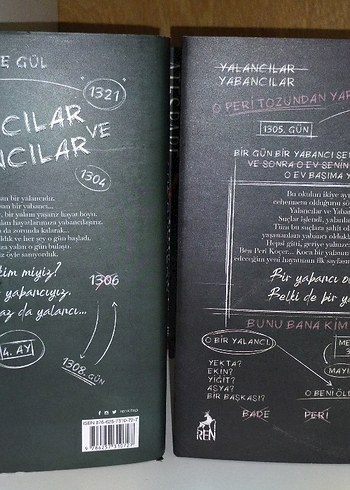 E GÜL
1321
CILAR
VE
NCILAR
1304
bir yalancıdır.
bir yabancı...
bir yalanı yaşarız hayat boyu.
hayatlarımıza yabancılaşırız.
da sonunda kalarak...
ve her şey o gün başladı.
yalan o gün bulaştı.
öyle sanıyorduk.
kim miyiz?
1306
yabancıyız.
az da yalancı...
4. AY
1308. GÜN
ISBN: 978-625-7310-72-7
9 786257 310727
YALANCILAR
YABANCILAR
O PERİ TOZUNDAN YAP
1305. GÜN
BİR GÜN BİR YABANCI SE
VE SONRA O EV SENİN
O EV BAŞIMA Y
Bu okulun ikiye ayr
cehennem olduğunu söy
Yalancılar ve Yaba
Suçlar işlendi, yalanlar
Tüm bu suçlara şahit ol
yaşananları yabancı oldukl
Hepsi gitti, geriye yalnızc
Ben Peri Koçer... Koca bir yalanın
edeceğim yeni hayatımın ilk sayfasın
Bir yabancı o
Belki de bir ya
BUNU BANA KİM
O BİR YALANCI.
ME
MAYI
YEKTA?
EKİN?
YİĞİT?
ASYA?
BİR BAŞKASI?
O BENİ ÖL
BADE
PERİ
REN